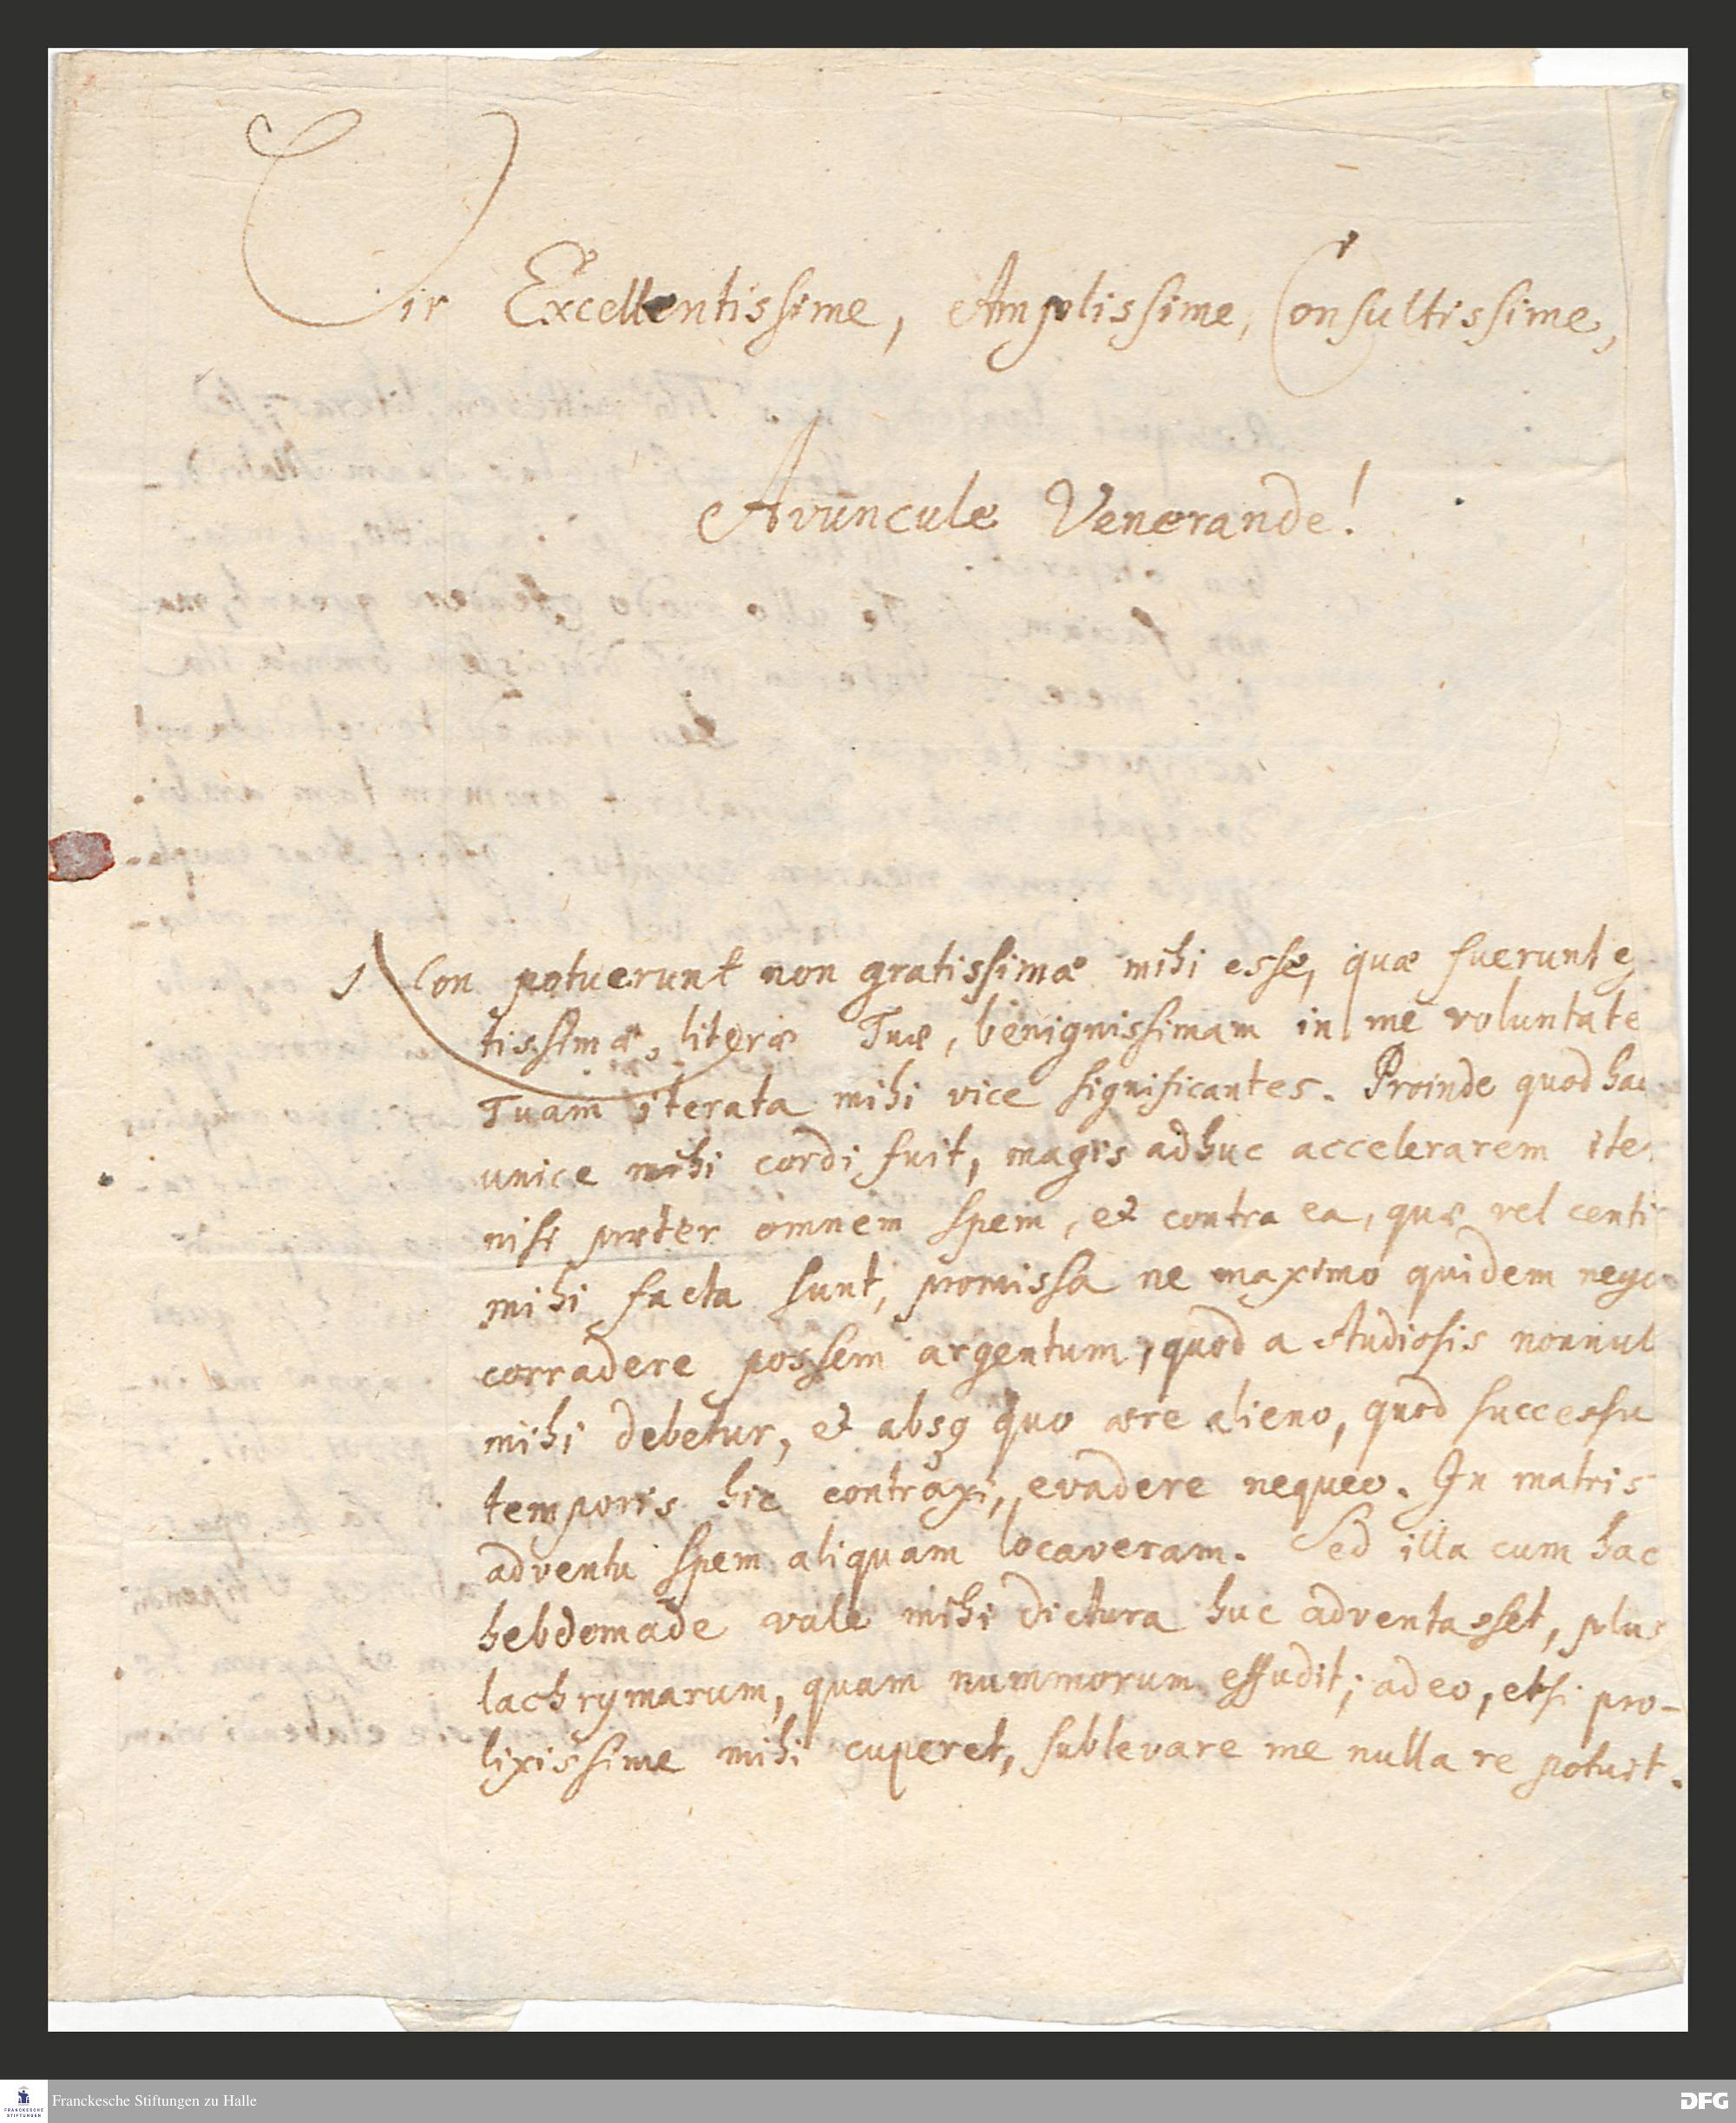 Vir Excellentissime, Amplissime, Consultissime,
Avuncule Venerande!
Non potuerunt non gratissimæ mihi esse, quæ fuerunt
tissimæ, literæ Tuæ, benignissimam in me voluntate
Tuam iterata mihi vice significantes. Proinde quod hac
unice mihi cordi fuit, magis adhuc accelerarem iter
nisi præter omnem spem, et contra ea, quæ vel centi
mihi facta sunt, promissa ne maximo quidem nego
corradere possem argentum, quod a Studiosis nonnul
mihi debetur, et absq quo ære alieno, quod successu
temporis hic contraxi, evadere nequeo. In matris
adventu spem aliquam locaveram. Sed illa cum hac
hebdomade vale mihi dictura huc adventasset, plus
lachrymarum, quam nummorum effudit; adeo, etsi pro-
lixissime mihi cuperet, sublevare me nulla re potuit.
Franckesche Stiftungen zu Halle
FRANCKESCHE
STIFTUNGEN
DFG